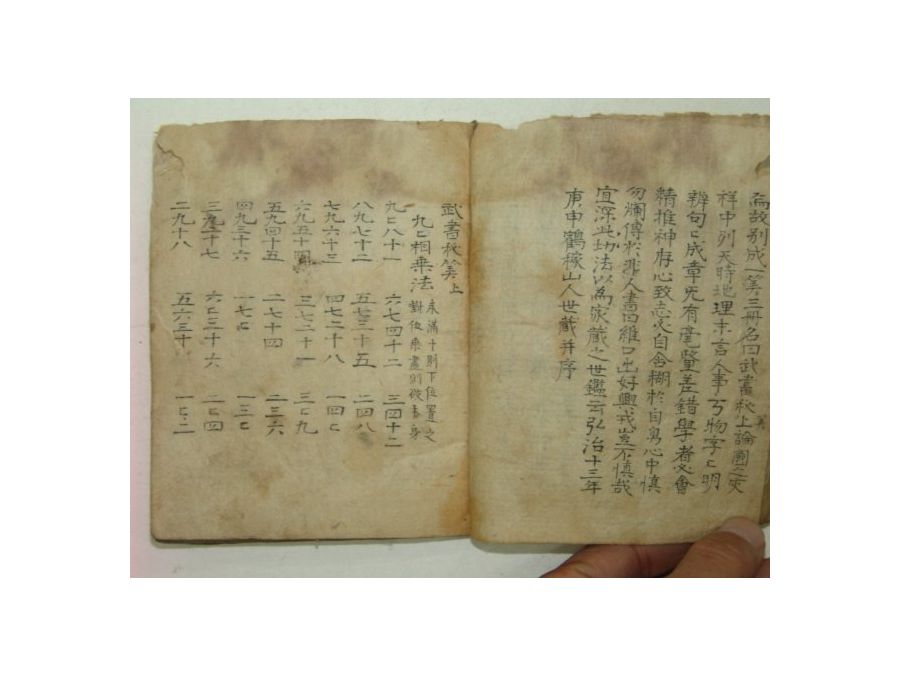 故別成一筭三冊名曰武書秘上論國之灾
祥中列天時地理末言人事万物字〻明
辨句〻成章旡有毫釐差錯學者必會
精推神存心致志必自舍糊於自寫心中慎
勿爛傳於非人書曰維口出好興戎豈不慎哉
宜深此功法以為家藏之世鑑云弘治十三年
庚申鶴檺山人世蔵并序
武書秘筭上
九〻相乗法 未滿十則下位置之
對位乗盡則従本身
九〻八十一 六七四十二 三四十二
八九七十二 五七三十五 二四八
七九六十三 四七二十八 一四〻
六九五十四 三七二十一 三〻九
五九四十五 二七十四 二三六
四九三十六 一七〻 一三〻
三九二十七 六〻三十六 二〻四
二九十八 五六三十 一〻二